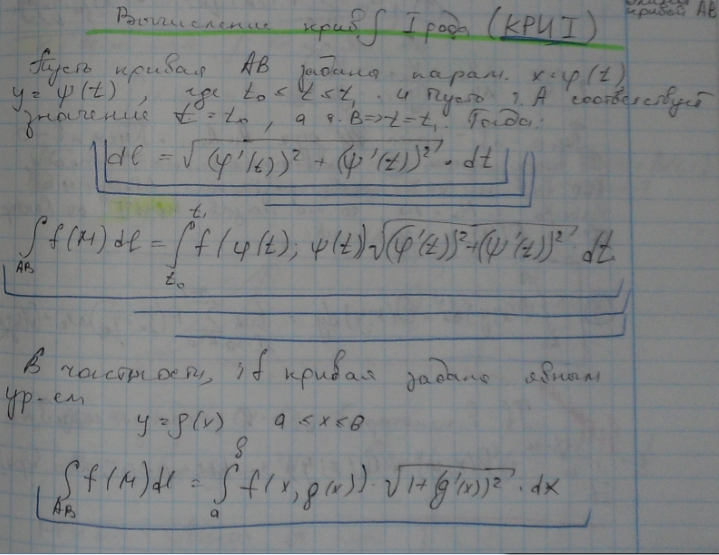 кривой AB
Вычисление крив. ∫ I рода (КРИ I)
Пусть кривая AB задана парам. x=φ(t)
y=ψ(t), где t₀≤t≤t₁. и пусть т. A соответствует
значение t=t₀, а т. B=>t=t₁. Тогда:
dl = √((φ'(t))² + (ψ'(t))²) · dt
∫_{AB} f(M)dl = ∫_{t₀}^{t₁} f(φ(t); ψ(t)) √((φ'(t))²+(ψ'(t))²) · dt
В частности, if кривая задана явным
ур-ем
y=g(x) a≤x≤b
∫_{AB} f(M)dl = ∫_{a}^{b} f(x, g(x)) · √(1+(g'(x))²) · dx